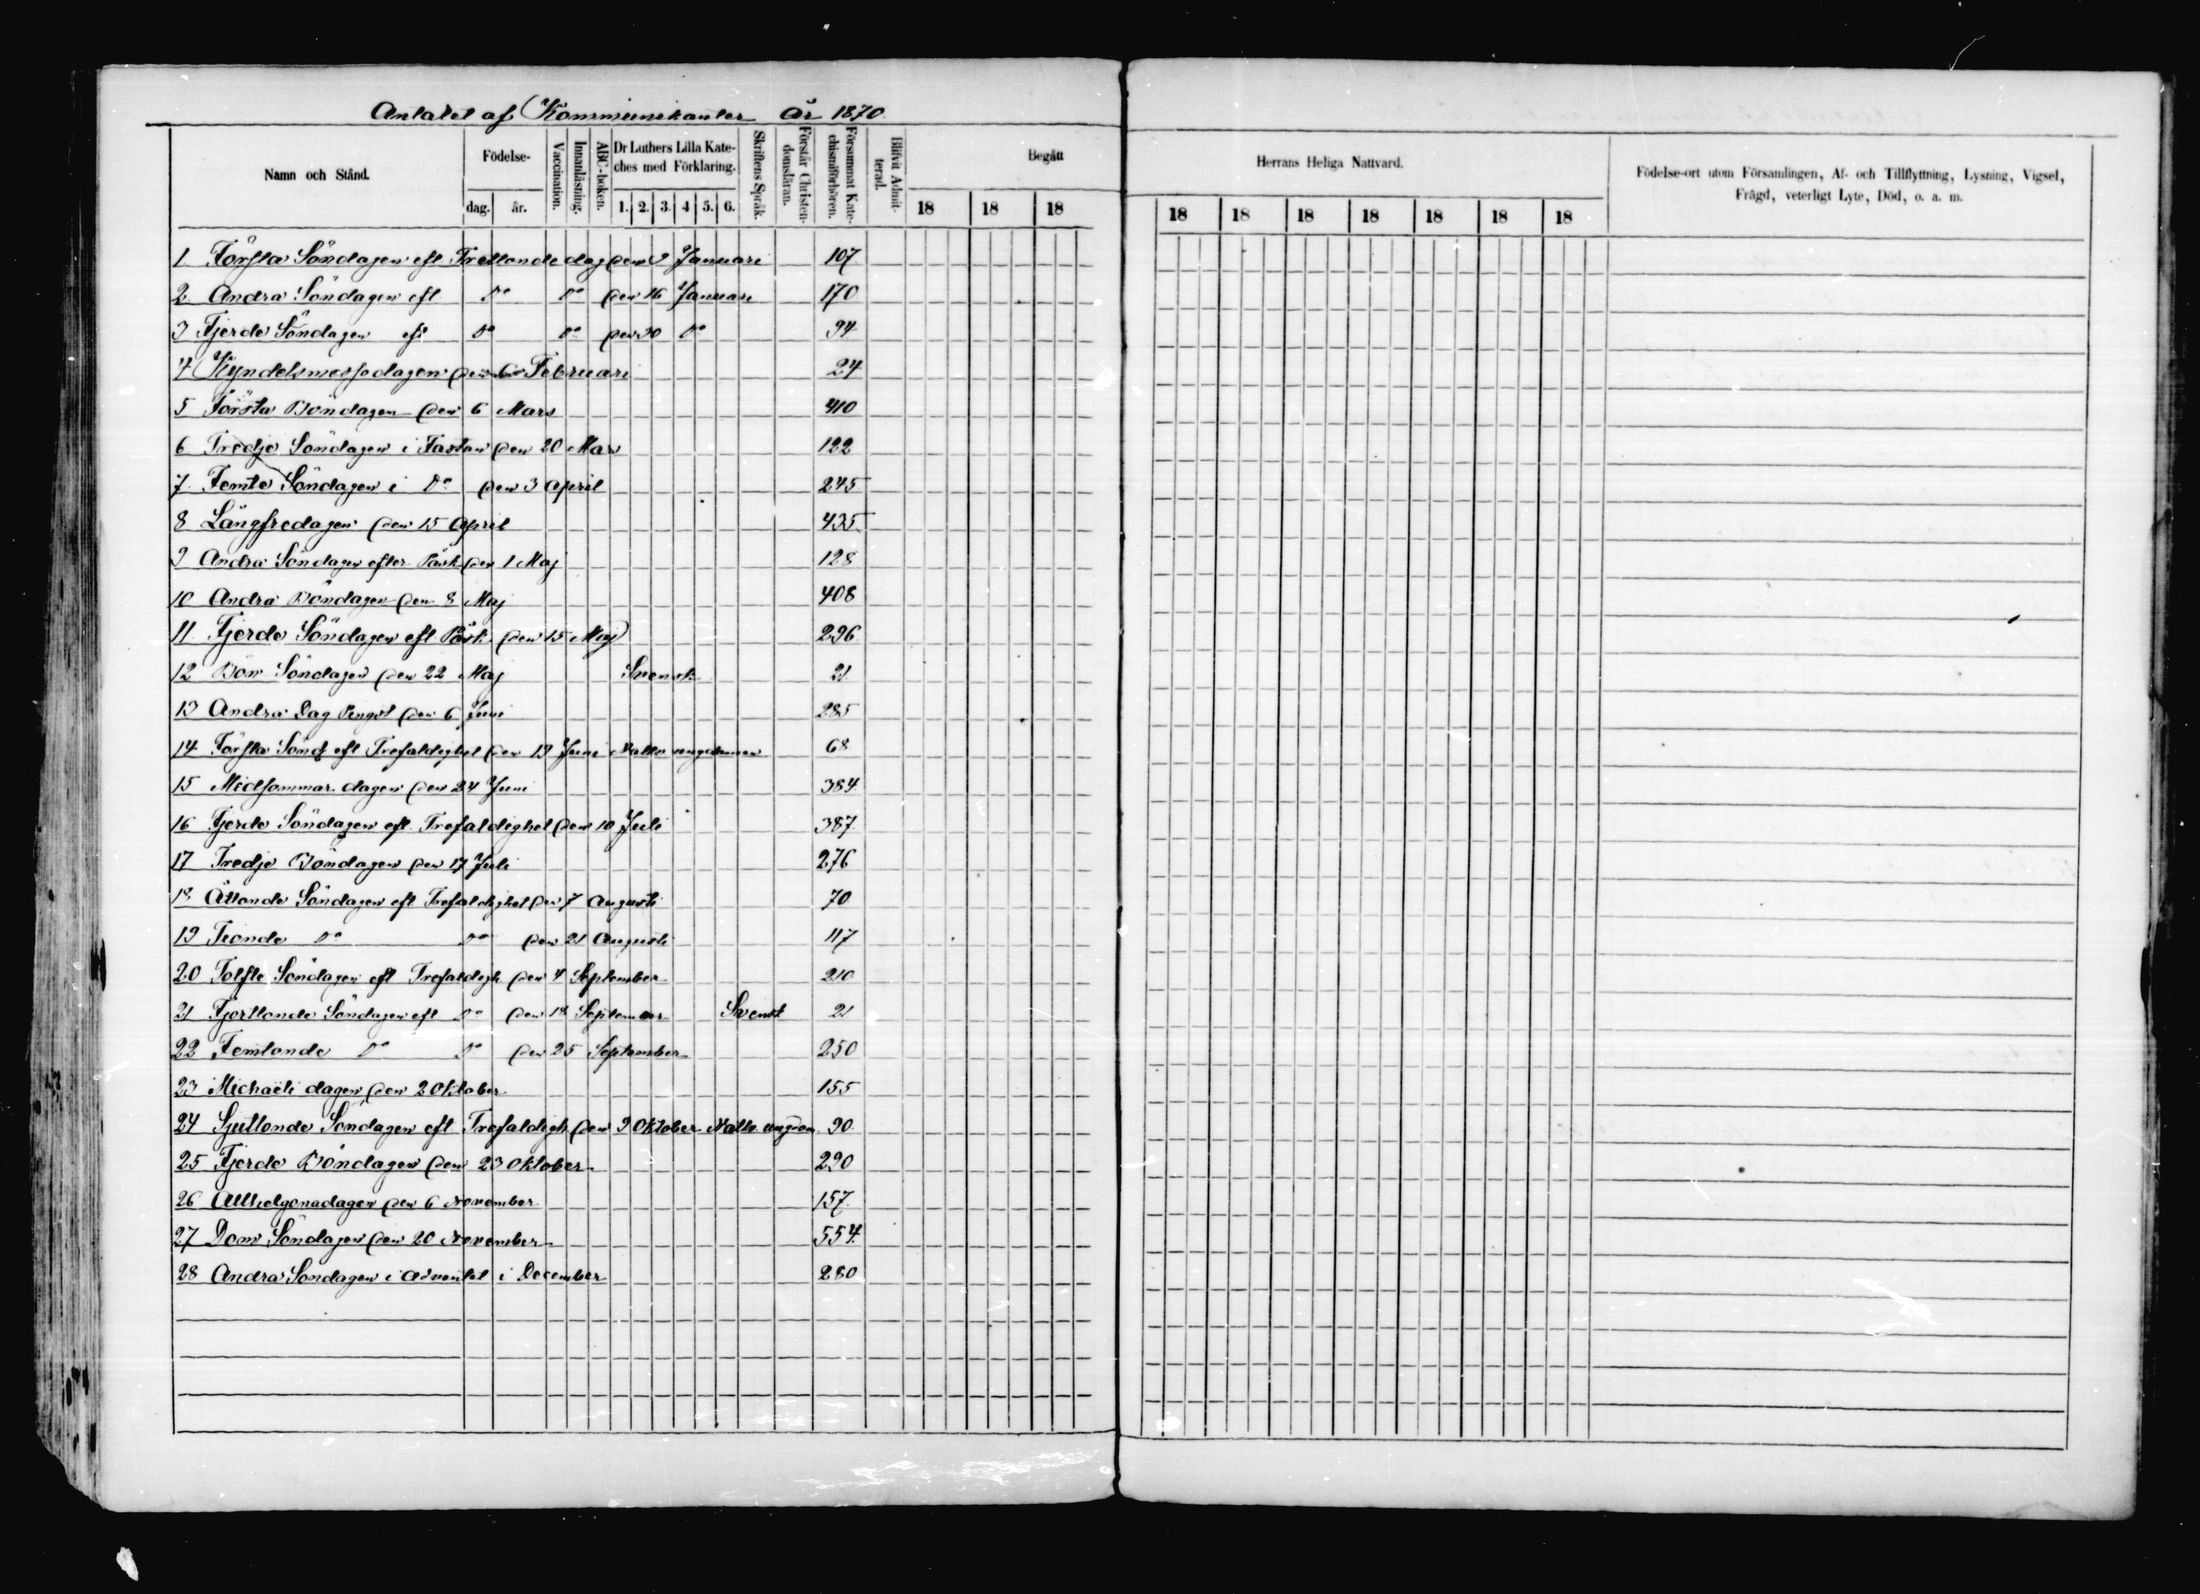 Antalet af Kommunikanter år 1870
Namn och Stånd.
Födelse-
dag. år.
Vaccination.
Innanläsning.
ABC-boken.
Dr Luthers Lilla Kate-
ches med Förklaring.
1. 2. 3. 4 5. 6.
Skriftens Språk.
Förstår Christen-
domsläran.
Försummat Kate-
chismiförhören.
Blifvit Admit-
terad.
Begått
18 18 18
Herrans Heliga Nattvard.
18 18 18 18 18 18 18
Födelse-ort utom Församlingen, Af- och Tillflyttning, Lysning, Vigsel,
Frägd, veterligt Lyte, Död, o. a. m.
1 Första Söndagen eft Trettonde dag den 9 Januari 107
2 Andra Söndagen eft Do Do den 16 Januari 170
3 Fjerde Söndagen eft Do Do den 30 Do 94
4 Kyndelsmessodagen den 6 Februari 24
5 Första Böndagen den 6 Mars 410
6 Tredje Söndagen i Fastan den 20 Mars 122
7 Femte Söndagen i Do den 3 April 245
8 Långfredagen den 15 April 435
9 Andra Söndagen efter Påsk den 1 Maj 128
10 Andra Böndagen den 8 Maj 408
11 Fjerde Söndagen eft Påsk den 15 Maj 296
12 Bön Söndagen den 22 Maj Svensk 21
13 Andra Dag Pingst den 6 Juni 285
14 Första Sönd eft Trefaldighet den 19 Juni Nattv ungdomen 68
15 Midsommar dagen den 24 Juni 384
16 Fjerde Söndagen eft Trefaldighet den 10 Juli 387
17 Tredje Böndagen den 17 Juli 276
18 Åttonde Söndagen eft Trefaldighet den 7 Augusti 70
19 Tionde Do Do den 21 Augusti 117
20 Tolfte Söndagen eft Trefaldigh den 4 September 210
21 Fjortonde Söndagen eft Do den 18 September Svensk 21
22 Femtonde Do Do den 25 September 250
23 Michaëli dagen den 2 Oktober 155
24 Sjuttonde Söndagen eft Trefaldigh den 9 Oktober Nattv ungdom 90
25 Fjerde Böndagen den 23 Oktober 290
26 Allhelgonadagen den 6 November 157
27 Dom Söndagen den 20 November 554
28 Andra Söndagen i Adventet i December 280